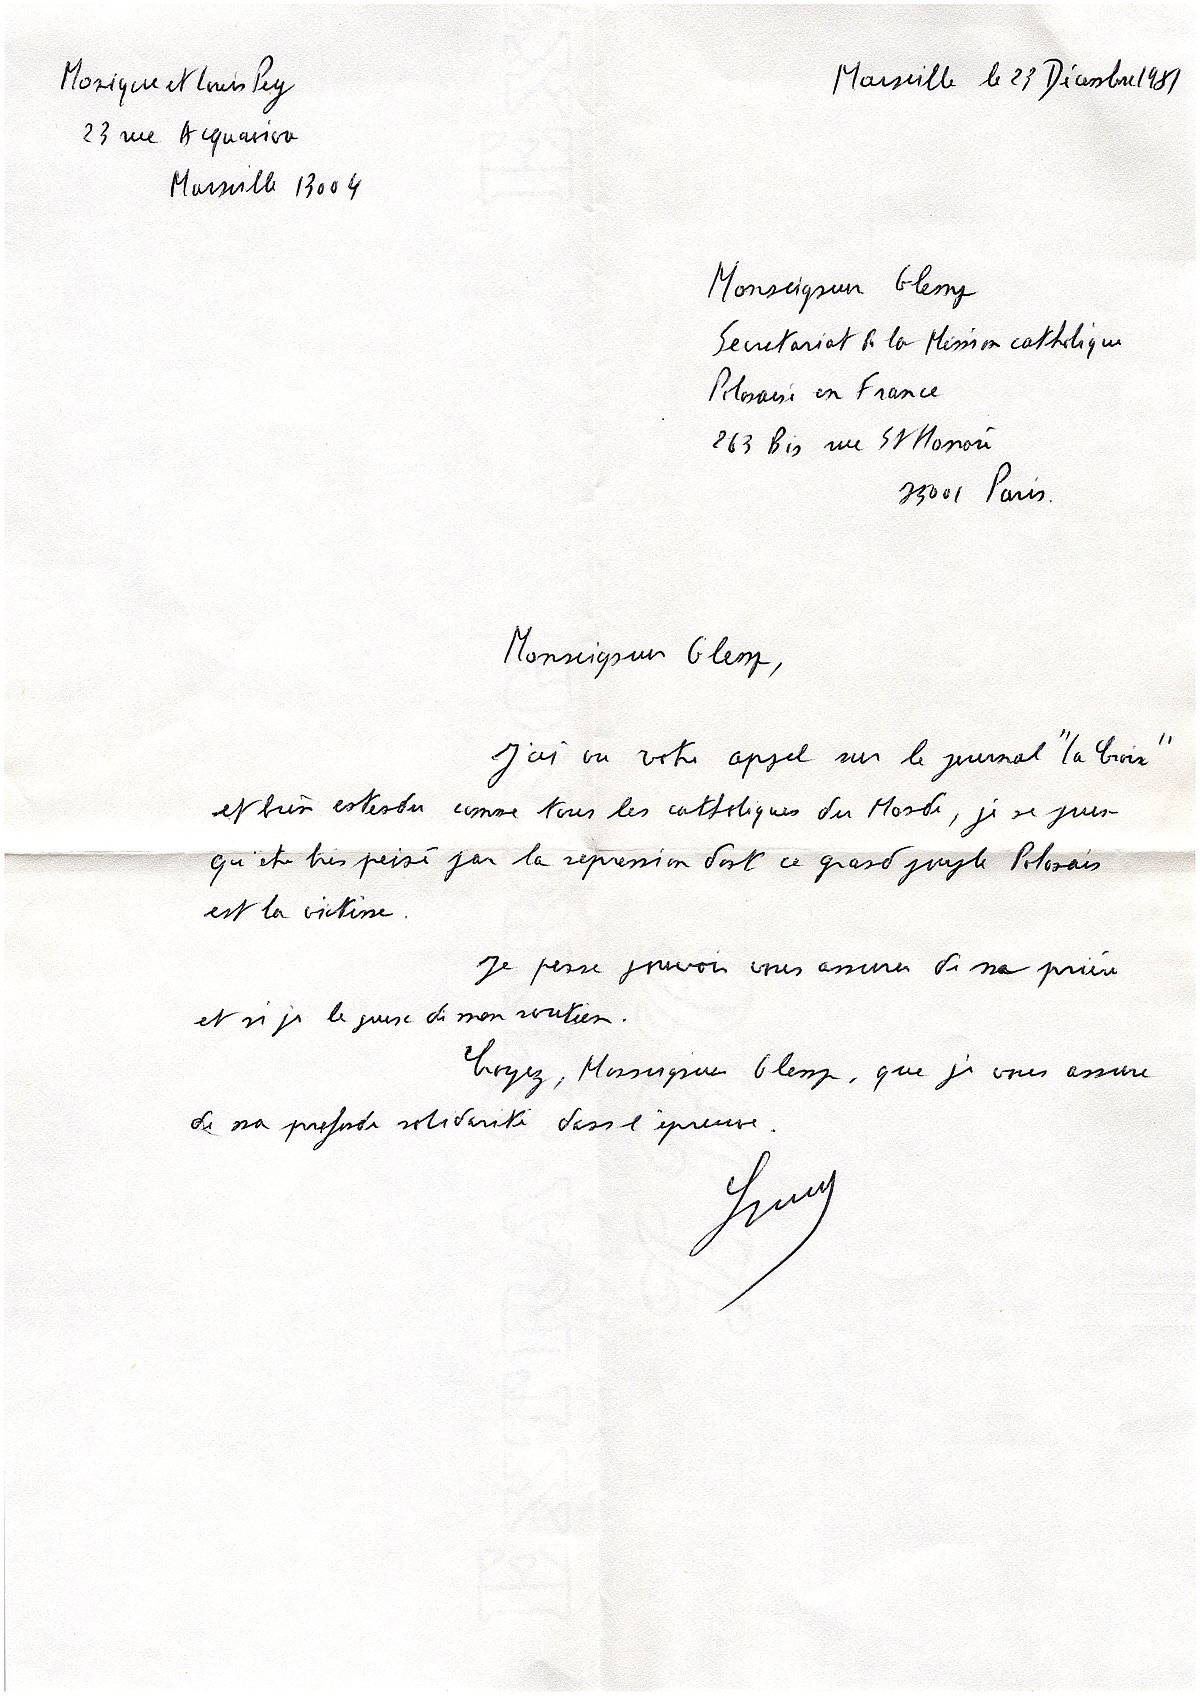 Monique et Louis Pey
Marseille le 23 Décembre 1981
23 rue Acquaviva
Marseille 13004
Monseigneur Glemp
Secretariat de la Mission catholique
Polonaise en France
263 Bis rue St Honoré
75001 Paris.
Monseigneur Glemp,
J'ai vu votre appel sur le journal "la Croix"
et bien entendu comme tous les catholiques du Monde, je ne peux
qu'etre très peiné par la repression dont ce grand peuple Polonais
est la victime.
Je pense pouvoir vous assurer de ma prière
et si je le puis de mon soutien.
Croyez, Monseigneur Glemp, que je vous assure
de ma profonde solidarité dans l'épreuve.